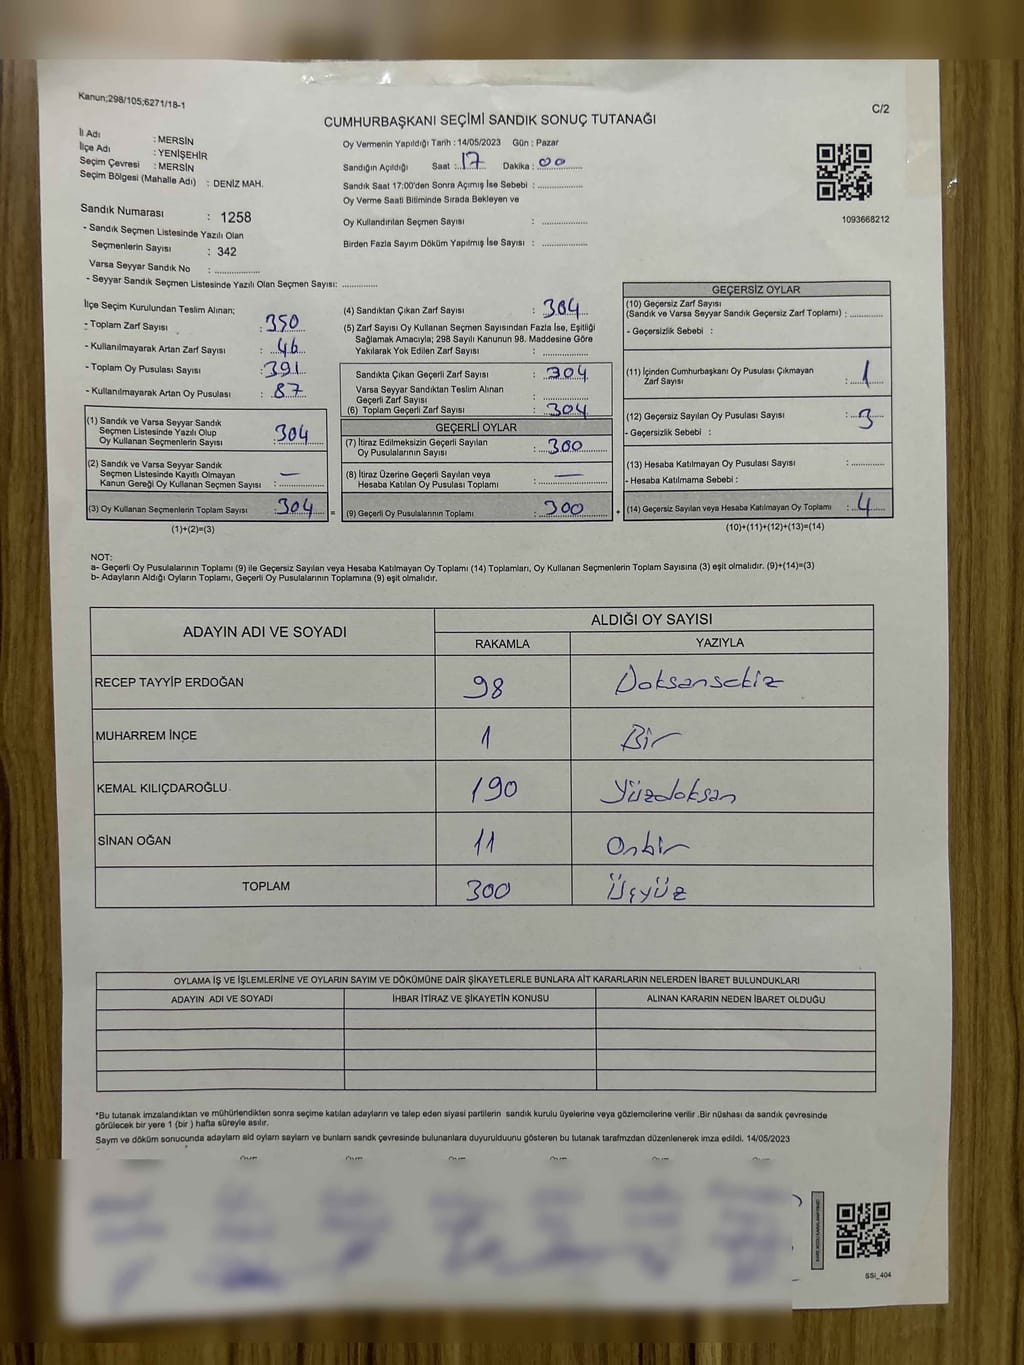 Kanun;298/105;6271/18-1
C/2
CUMHURBAŞKANI SEÇİMİ SANDIK SONUÇ TUTANAĞI
İl Adı : MERSİN
İlçe Adı : YENİŞEHİR
Seçim Çevresi : MERSİN
Seçim Bölgesi (Mahalle Adı) : DENİZ MAH.
Oy Vermenin Yapıldığı Tarih : 14/05/2023 Gün : Pazar
Sandığın Açıldığı Saat : 17 Dakika : 00
Sandık Saat 17:00'den Sonra Açımış İse Sebebi : ................
Oy Verme Saati Bitiminde Sırada Bekleyen ve
Oy Kullandırılan Seçmen Sayısı : ................
Birden Fazla Sayım Döküm Yapılmış İse Sayısı : ................
1093668212
Sandık Numarası : 1258
- Sandık Seçmen Listesinde Yazılı Olan
Seçmenlerin Sayısı : 342
Varsa Seyyar Sandık No : ................
- Seyyar Sandık Seçmen Listesinde Yazılı Olan Seçmen Sayısı: ............
İlçe Seçim Kurulundan Teslim Alınan;
- Toplam Zarf Sayısı : 350
- Kullanılmayarak Artan Zarf Sayısı : 46
- Toplam Oy Pusulası Sayısı : 391
- Kullanılmayarak Artan Oy Pusulası : 87
(1) Sandık ve Varsa Seyyar Sandık
Seçmen Listesinde Yazılı Olup
Oy Kullanan Seçmenlerin Sayısı : 304
(2) Sandık ve Varsa Seyyar Sandık
Seçmen Listesinde Kayıtlı Olmayan
Kanun Gereği Oy Kullanan Seçmen Sayısı : —
(3) Oy Kullanan Seçmenlerin Toplam Sayısı : 304 =
(1)+(2)=(3)
(4) Sandıktan Çıkan Zarf Sayısı : 304
(5) Zarf Sayısı Oy Kullanan Seçmen Sayısından Fazla İse, Eşitliği
Sağlamak Amacıyla; 298 Sayılı Kanunun 98. Maddesine Göre
Yakılarak Yok Edilen Zarf Sayısı : ................
Sandıkta Çıkan Geçerli Zarf Sayısı : 304
Varsa Seyyar Sandıktan Teslim Alınan
Geçerli Zarf Sayısı : ................
(6) Toplam Geçerli Zarf Sayısı : 304
GEÇERLİ OYLAR
(7) İtiraz Edilmeksizin Geçerli Sayılan
Oy Pusulalarının Sayısı : 300
(8) İtiraz Üzerine Geçerli Sayılan veya
Hesaba Katılan Oy Pusulası Toplamı : —
(9) Geçerli Oy Pusulalarının Toplamı : 300 +
GEÇERSİZ OYLAR
(10) Geçersiz Zarf Sayısı
(Sandık ve Varsa Seyyar Sandık Geçersiz Zarf Toplamı) : ............
- Geçersizlik Sebebi :
(11) İçinden Cumhurbaşkanı Oy Pusulası Çıkmayan
Zarf Sayısı : 1
(12) Geçersiz Sayılan Oy Pusulası Sayısı : 3
- Geçersizlik Sebebi :
(13) Hesaba Katılmayan Oy Pusulası Sayısı : ............
- Hesaba Katılmama Sebebi :
(14) Geçersiz Sayılan veya Hesaba Katılmayan Oy Toplamı : 4
(10)+(11)+(12)+(13)=(14)
NOT:
a- Geçerli Oy Pusulalarının Toplamı (9) ile Geçersiz Sayılan veya Hesaba Katılmayan Oy Toplamı (14) Toplamları, Oy Kullanan Seçmenlerin Toplam Sayısına (3) eşit olmalıdır. (9)+(14)=(3)
b- Adayların Aldığı Oyların Toplamı, Geçerli Oy Pusulalarının Toplamına (9) eşit olmalıdır.
ADAYIN ADI VE SOYADI ALDIĞI OY SAYISI
RAKAMLA YAZIYLA
RECEP TAYYİP ERDOĞAN 98 Doksansekiz
MUHARREM İNCE 1 Bir
KEMAL KILIÇDAROĞLU 190 Yüzdoksan
SİNAN OĞAN 11 Onbir
TOPLAM 300 Üçyüz
OYLAMA İŞ VE İŞLEMLERİNE VE OYLARIN SAYIM VE DÖKÜMÜNE DAİR ŞİKAYETLERLE BUNLARA AİT KARARLARIN NELERDEN İBARET BULUNDUKLARI
ADAYIN ADI VE SOYADI İHBAR İTİRAZ VE ŞİKAYETİN KONUSU ALINAN KARARIN NEDEN İBARET OLDUĞU
*Bu tutanak imzalandıktan ve mühürlendikten sonra seçime katılan adayların ve talep eden siyasi partilerin sandık kurulu üyelerine veya gözlemcilerine verilir .Bir nüshası da sandık çevresinde
görülecek bir yere 1 (bir ) hafta süreyle asılır.
Sayım ve döküm sonucunda adayların aldı oyların sayları ve bunların sandk çevresinde bulunanlara duyurulduunu gösteren bu tutanak tarafmzdan düzenlenerek imza edildi. 14/05/2023
SSI_404